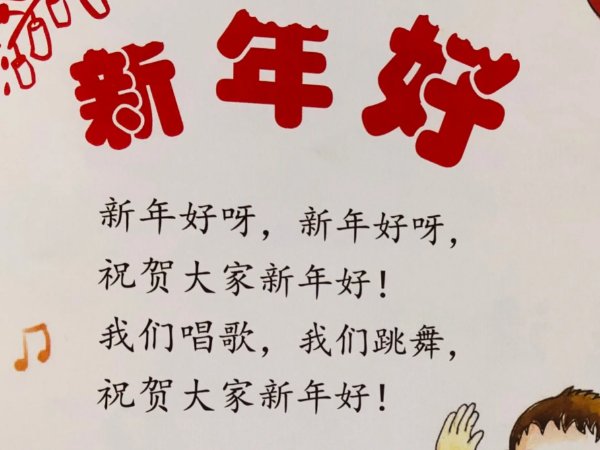 新年好
新年好呀，新年好呀，
祝贺大家新年好！
我们唱歌，我们跳舞，
祝贺大家新年好！